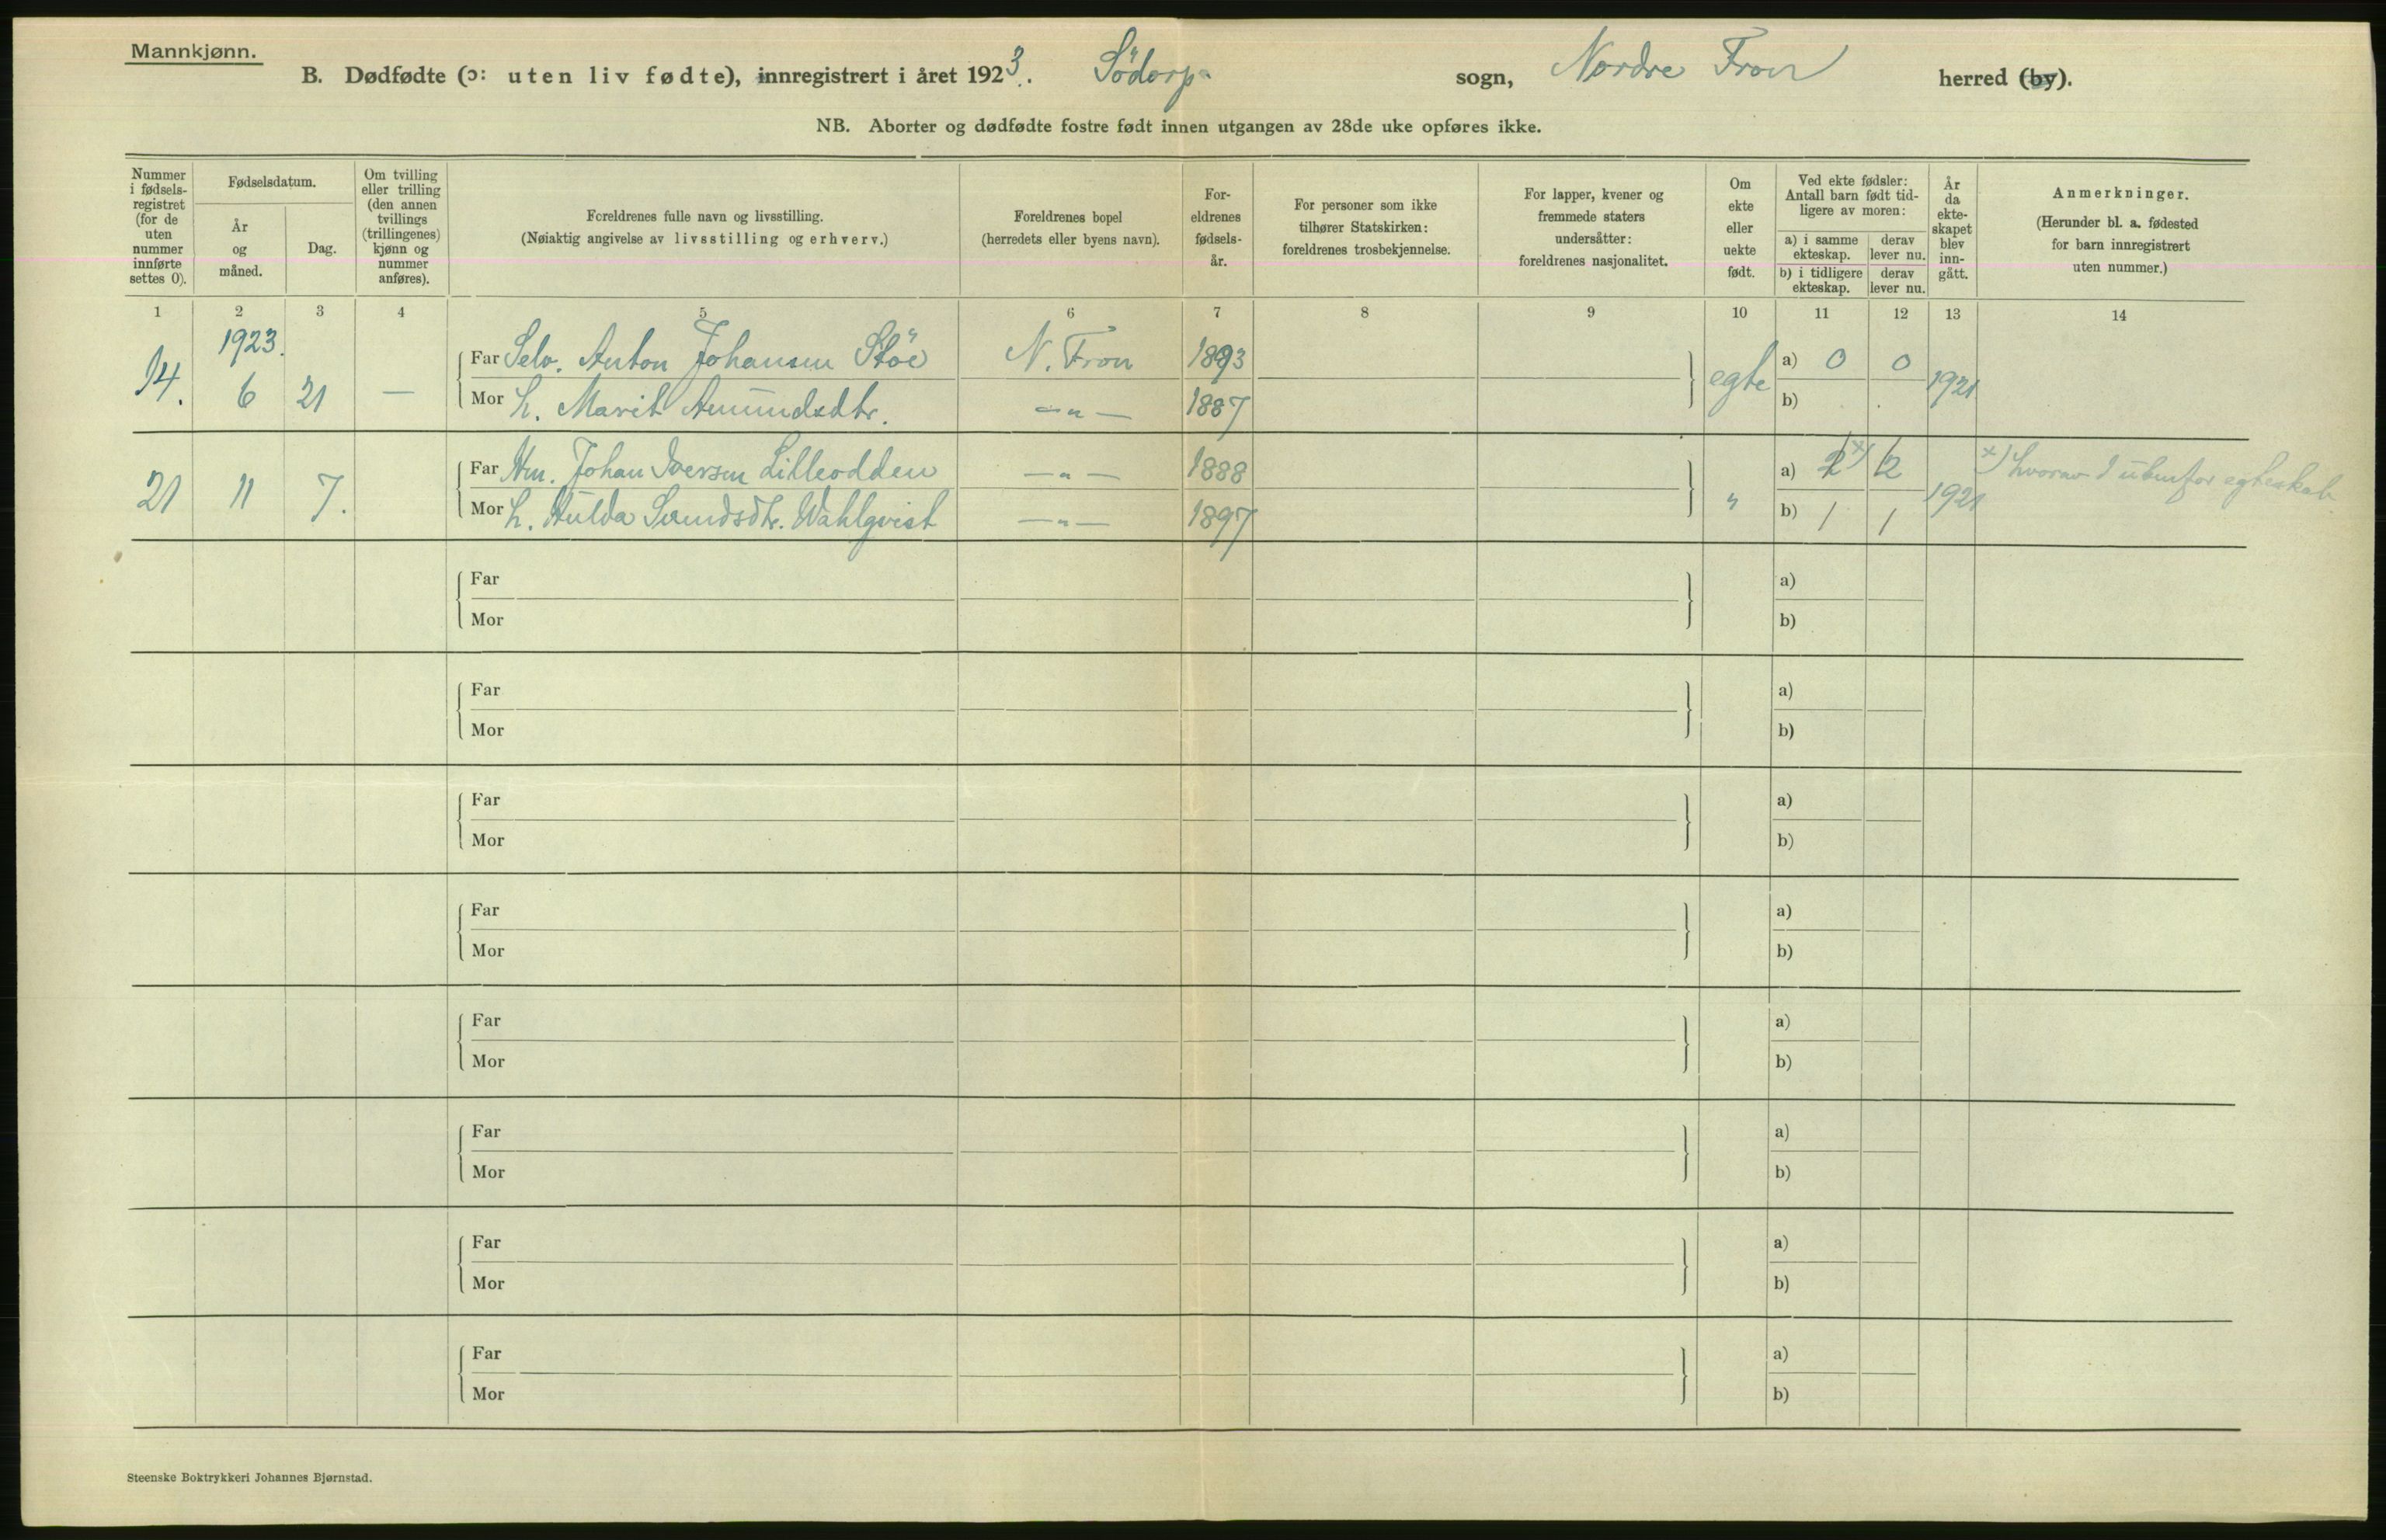 Mannkjønn.
B. Dødfødte (ɔ: uten liv fødte), innregistrert i året 1923. Södorp sogn, Nordre Fron herred (by).
NB. Aborter og dødfødte fostre født innen utgangen av 28de uke opføres ikke.
Nummer i fødsels- registret (for de uten nummer innførte settes 0).
Fødselsdatum.
År og måned.
Dag.
Om tvilling eller trilling (den annen tvillings (trillingenes) kjønn og nummer anføres).
Foreldrenes fulle navn og livsstilling.
(Nøiaktig angivelse av livsstilling og erhverv.)
Foreldrenes bopel
(herredets eller byens navn).
For- eldrenes fødsels- år.
For personer som ikke tilhører Statskirken: foreldrenes trosbekjennelse.
For lapper, kvener og fremmede staters undersåtter: foreldrenes nasjonalitet.
Om ekte eller uekte født.
Ved ekte fødsler: Antall barn født tid- ligere av moren:
a) i samme ekteskap.
derav lever nu.
b) i tidligere ekteskap.
derav lever nu.
År da ekte- skapet blev inn- gått.
Anmerkninger.
(Herunder bl. a. fødested for barn innregistrert uten nummer.)
1 2 3 4 5 6 7 8 9 10 11 12 13 14
1923.
14. 6 21 — Far Selv. Anton Johansen Stöe N. Fron 1893 egte a) 0 0 1921
Mor h. Marit Amundsdtr. —"— 1887 b)
21 11 7. Far Hm. Johan Iversen Lilleodden —"— 1888 " a) 2 x) 2 1921 x) hvorav 1 utenfor egteskab
Mor h. Hulda Wahlqvist —"— 1897 b) 1 1
Far a)
Mor b)
Far a)
Mor b)
Far a)
Mor b)
Far a)
Mor b)
Far a)
Mor b)
Far a)
Mor b)
Far a)
Mor b)
Far a)
Mor b)
Steenske Boktrykkeri Johannes Bjørnstad.